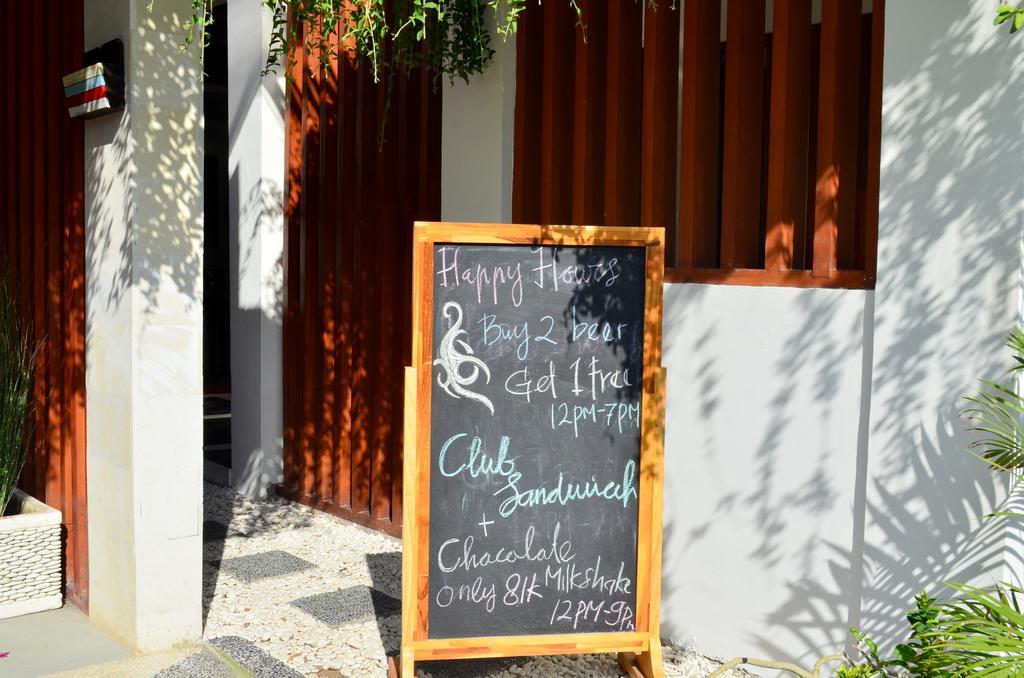 Happy Hours
Buy 2 beer
Get 1 free
12PM-7PM
Club
Sandwich
+
Chacolate
Milkshake
only 81k
12PM-9Pm